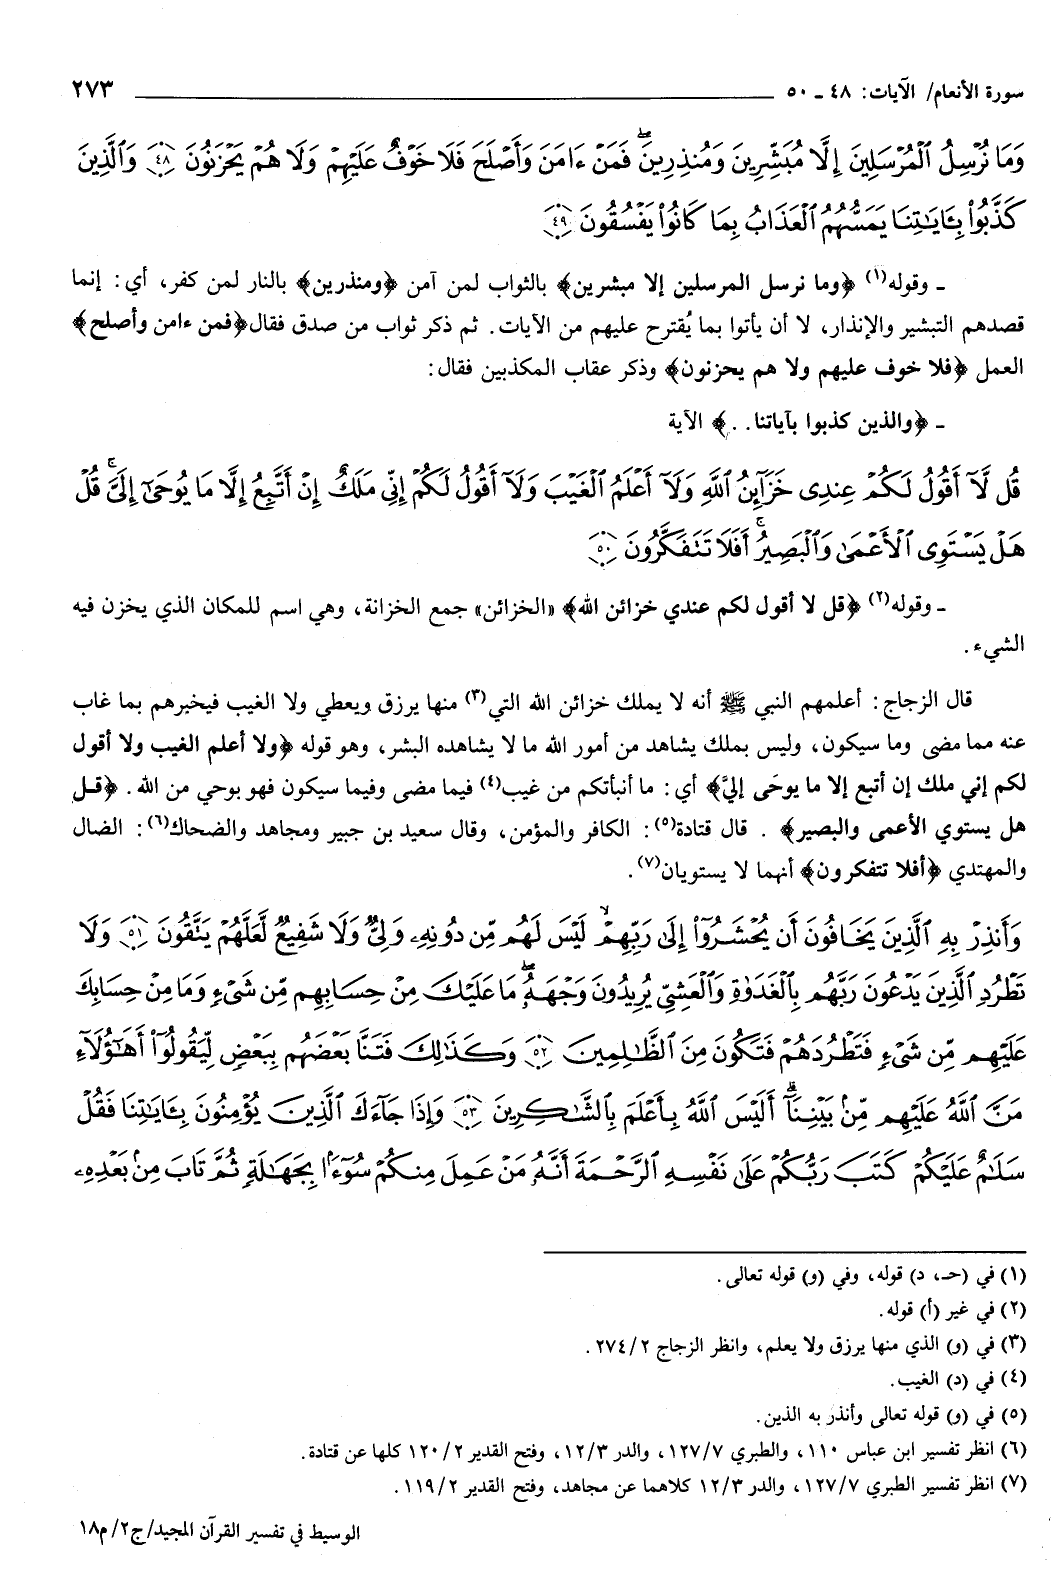 سورة الأنعام/ الآيات: ٤٨ ـ ٥٠ ٢٧٣
وَمَا نُرۡسِلُ ٱلۡمُرۡسَلِينَ إِلَّا مُبَشِّرِينَ وَمُنذِرِينَۖ فَمَنۡ ءَامَنَ وَأَصۡلَحَ فَلَا خَوۡفٌ عَلَيۡهِمۡ وَلَا هُمۡ يَحۡزَنُونَ ٤٨ وَٱلَّذِينَ
كَذَّبُواْ بِـَٔايَٰتِنَا يَمَسُّهُمُ ٱلۡعَذَابُ بِمَا كَانُواْ يَفۡسُقُونَ ٤٩
ـ وقوله(١) ﴿وما نرسل المرسلين إلا مبشرين﴾ بالثواب لمن آمن ﴿ومنذرين﴾ بالنار لمن كفر، أي: إنما
قصدهم التبشير والإنذار، لا أن يأتوا بما يُقترح عليهم من الآيات. ثم ذكر ثواب من صدق فقال﴿فمن ءامن وأصلح﴾
العمل ﴿فلا خوف عليهم ولا هم يحزنون﴾ وذكر عقاب المكذبين فقال:
ـ ﴿والذين كذبوا بآياتنا. .﴾ الآية
قُل لَّآ أَقُولُ لَكُمۡ عِندِي خَزَآئِنُ ٱللَّهِ وَلَآ أَعۡلَمُ ٱلۡغَيۡبَ وَلَآ أَقُولُ لَكُمۡ إِنِّي مَلَكٌۖ إِنۡ أَتَّبِعُ إِلَّا مَا يُوحَىٰٓ إِلَيَّۚ قُلۡ
هَلۡ يَسۡتَوِي ٱلۡأَعۡمَىٰ وَٱلۡبَصِيرُۚ أَفَلَا تَتَفَكَّرُونَ ٥٠
ـ وقوله(٢) ﴿قل لا أقول لكم عندي خزائن الله﴾ «الخزائن» جمع الخزانة، وهي اسم للمكان الذي يخزن فيه
الشيء.
قال الزجاج: أعلمهم النبي ﷺ أنه لا يملك خزائن الله التي(٣) منها يرزق ويعطي ولا الغيب فيخبرهم بما غاب
عنه مما مضى وما سيكون، وليس بملك يشاهد من أمور الله ما لا يشاهده البشر، وهو قوله ﴿ولا أعلم الغيب ولا أقول
لكم إني ملك إن أتبع إلا ما يوحَى إليَّ﴾ أي: ما أنبأتكم من غيب(٤) فيما مضى وفيما سيكون فهو بوحي من الله. ﴿قل
هل يستوي الأعمى والبصير﴾ . قال قتادة(٥): الكافر والمؤمن، وقال سعيد بن جبير ومجاهد والضحاك(٦): الضال
والمهتدي ﴿أفلا تتفكرون﴾ أنهما لا يستويان(٧).
وَأَنذِرۡ بِهِ ٱلَّذِينَ يَخَافُونَ أَن يُحۡشَرُوٓاْ إِلَىٰ رَبِّهِمۡۙ لَيۡسَ لَهُم مِّن دُونِهِۦ وَلِيٌّ وَلَا شَفِيعٌ لَّعَلَّهُمۡ يَتَّقُونَ ٥١ وَلَا
تَطۡرُدِ ٱلَّذِينَ يَدۡعُونَ رَبَّهُم بِٱلۡغَدَوٰةِ وَٱلۡعَشِيِّ يُرِيدُونَ وَجۡهَهُۥۖ مَا عَلَيۡكَ مِنۡ حِسَابِهِم مِّن شَيۡءٍ وَمَا مِنۡ حِسَابِكَ
عَلَيۡهِم مِّن شَيۡءٍ فَتَطۡرُدَهُمۡ فَتَكُونَ مِنَ ٱلظَّٰلِمِينَ ٥٢ وَكَذَٰلِكَ فَتَنَّا بَعۡضَهُم بِبَعۡضٍ لِّيَقُولُوٓاْ أَهَٰٓؤُلَآءِ
مَنَّ ٱللَّهُ عَلَيۡهِم مِّنۢ بَيۡنِنَآۗ أَلَيۡسَ ٱللَّهُ بِأَعۡلَمَ بِٱلشَّٰكِرِينَ ٥٣ وَإِذَا جَآءَكَ ٱلَّذِينَ يُؤۡمِنُونَ بِـَٔايَٰتِنَا فَقُلۡ
سَلَٰمٌ عَلَيۡكُمۡۖ كَتَبَ رَبُّكُمۡ عَلَىٰ نَفۡسِهِ ٱلرَّحۡمَةَ أَنَّهُۥ مَنۡ عَمِلَ مِنكُمۡ سُوٓءَۢا بِجَهَٰلَةٍ ثُمَّ تَابَ مِنۢ بَعۡدِهِۦ
(١) في (حـ، د) قوله، وفي (و) قوله تعالى.
(٢) في غير (أ) قوله.
(٣) في (و) الذي منها يرزق ولا يعلم، وانظر الزجاج ٢/ ٢٧٤.
(٤) في (د) الغيب.
(٥) في (و) قوله تعالى وأنذر به الذين.
(٦) انظر تفسير ابن عباس ١١٠، والطبري ٧/ ١٢٧، والدر ٣/ ١٢، وفتح القدير ٢/ ١٢٠ كلها عن قتادة.
(٧) انظر تفسير الطبري ٧/ ١٢٧، والدر ٣/ ١٢ كلاهما عن مجاهد، وفتح القدير ٢/ ١١٩.
الوسيط في تفسير القرآن المجيد/ج٢/م١٨